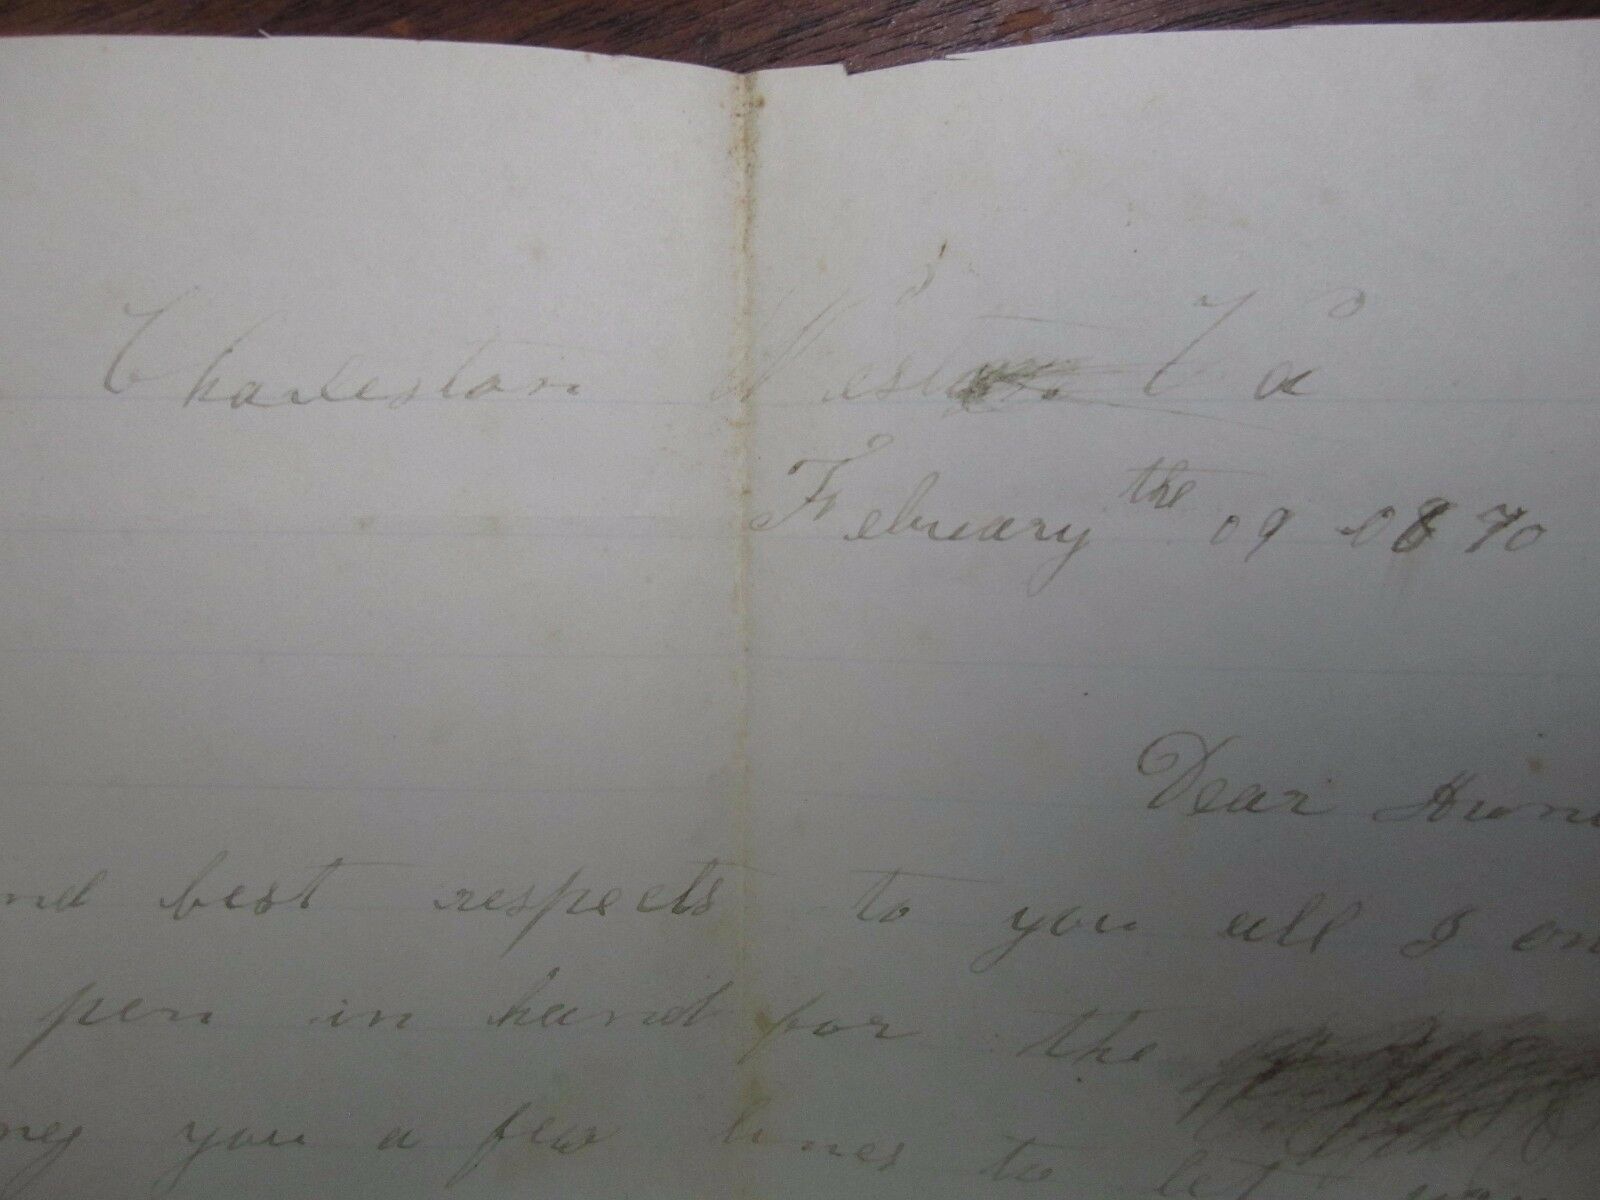 Charleston West Va
February the 09 1870
Dear
nd best respects to you all I
pen in hand for the
ng you a few lines to let